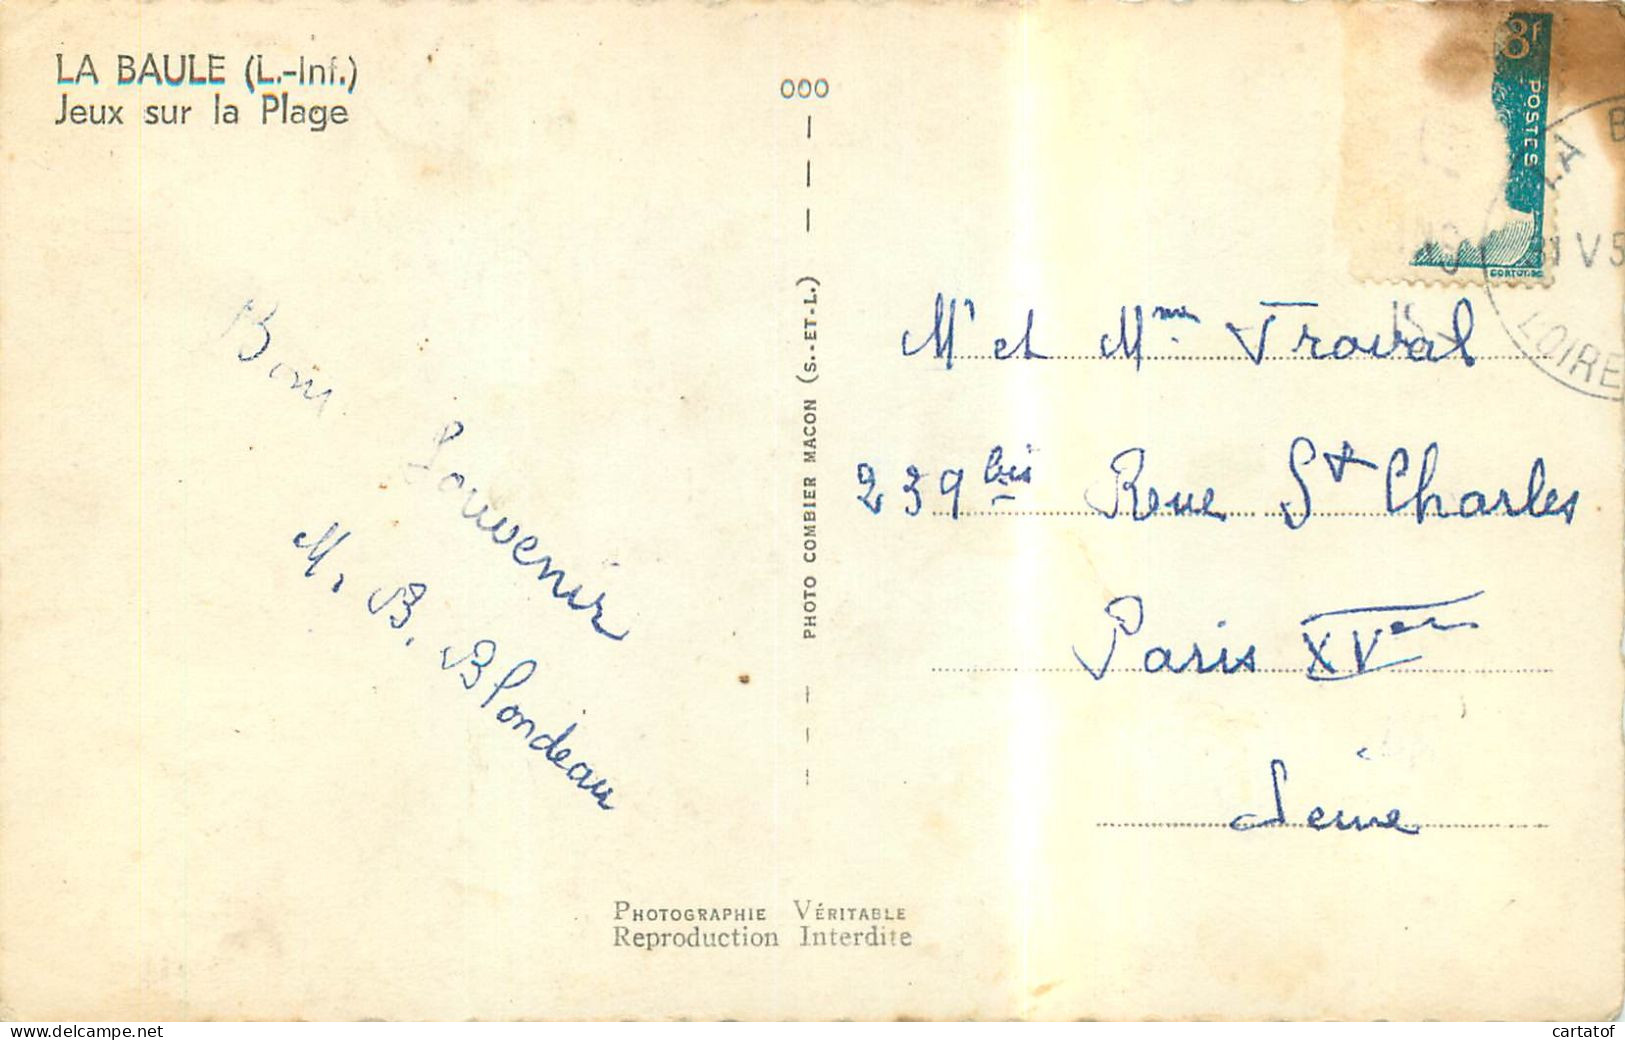 LA BAULE (L.-Inf.)
Jeux sur la Plage
000
8f
POSTES
LA B
31 V 5
LOIRE
Bon
Souvenir
M. B. Blondeau
PHOTO COMBIER MACON (S.-ET-L.)
Mr et Mme
239 bis Rue St Charles
Paris XVem
Seine
PHOTOGRAPHIE VÉRITABLE
Reproduction Interdite
www.delcampe.net
cartatof